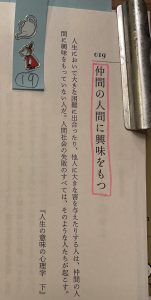 019
仲間の人間に興味をもつ
人生において大きな困難に出合ったり、他人に大きな害を与えたりする人は、仲間の人
間に興味をもっていない人だ。人間社会の失敗のすべては、そのような人たちが起こす。
『人生の意味の心理学 下』
19